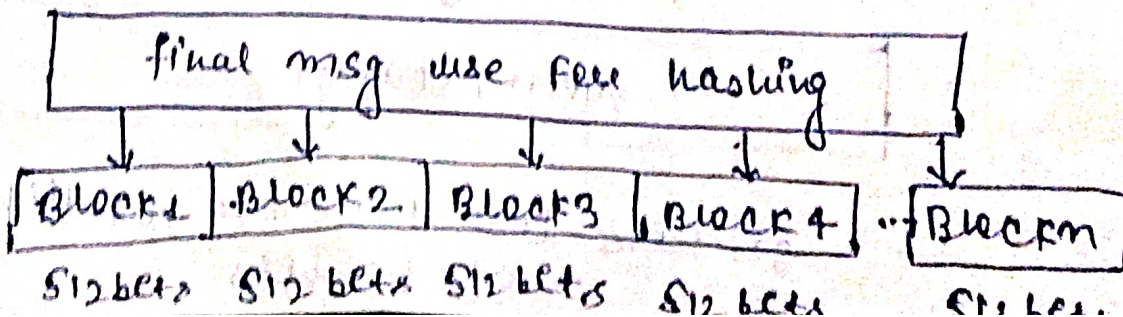 final msg use for hashing
Block1 Block2 Block3 Block4 ... Blockn
512 bits 512 bits 512 bits 512 bits 512 bits